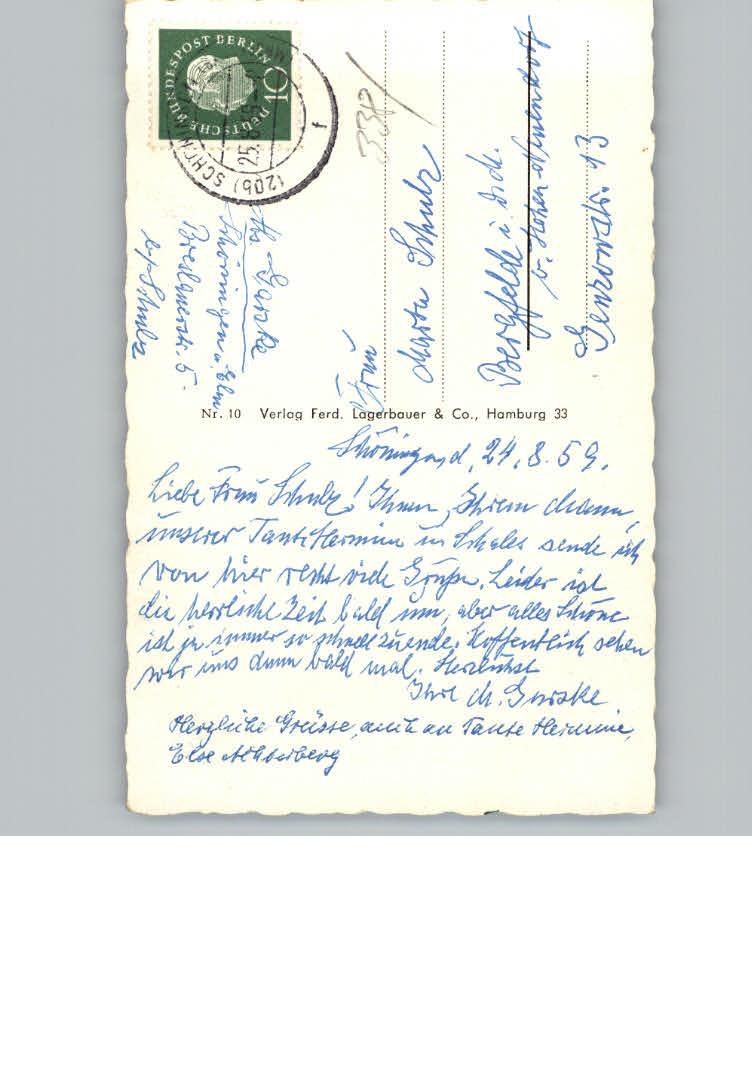 DEUTSCHE BUNDESPOST BERLIN
10
(20b)
25.8.59
f
33P/
Frau
Marta Schulz
Bergfelde i. Dsch.
v. Hohen Neuendorf
13
Abs Garske
Schöningen a. Elm
Breslauerstr. 5.
b/Schulz
Nr. 10 Verlag Ferd. Lagerbauer & Co., Hamburg 33
Schöningen, d, 24. 8. 59.
Liebe Frau Schulz! Ihnen, Ihrem Mann,
unserer Tante Hermine u. sende ich
von hier recht viele Grüße. Leider ist
die herrliche Zeit bald um, aber alles Schöne
ist ja immer so schnell zuende. Hoffentlich sehen
wir uns dann bald mal. Herzlichst
Ihre M. Garske
Herzliche Grüsse, auch an Tante Hermine,
Else